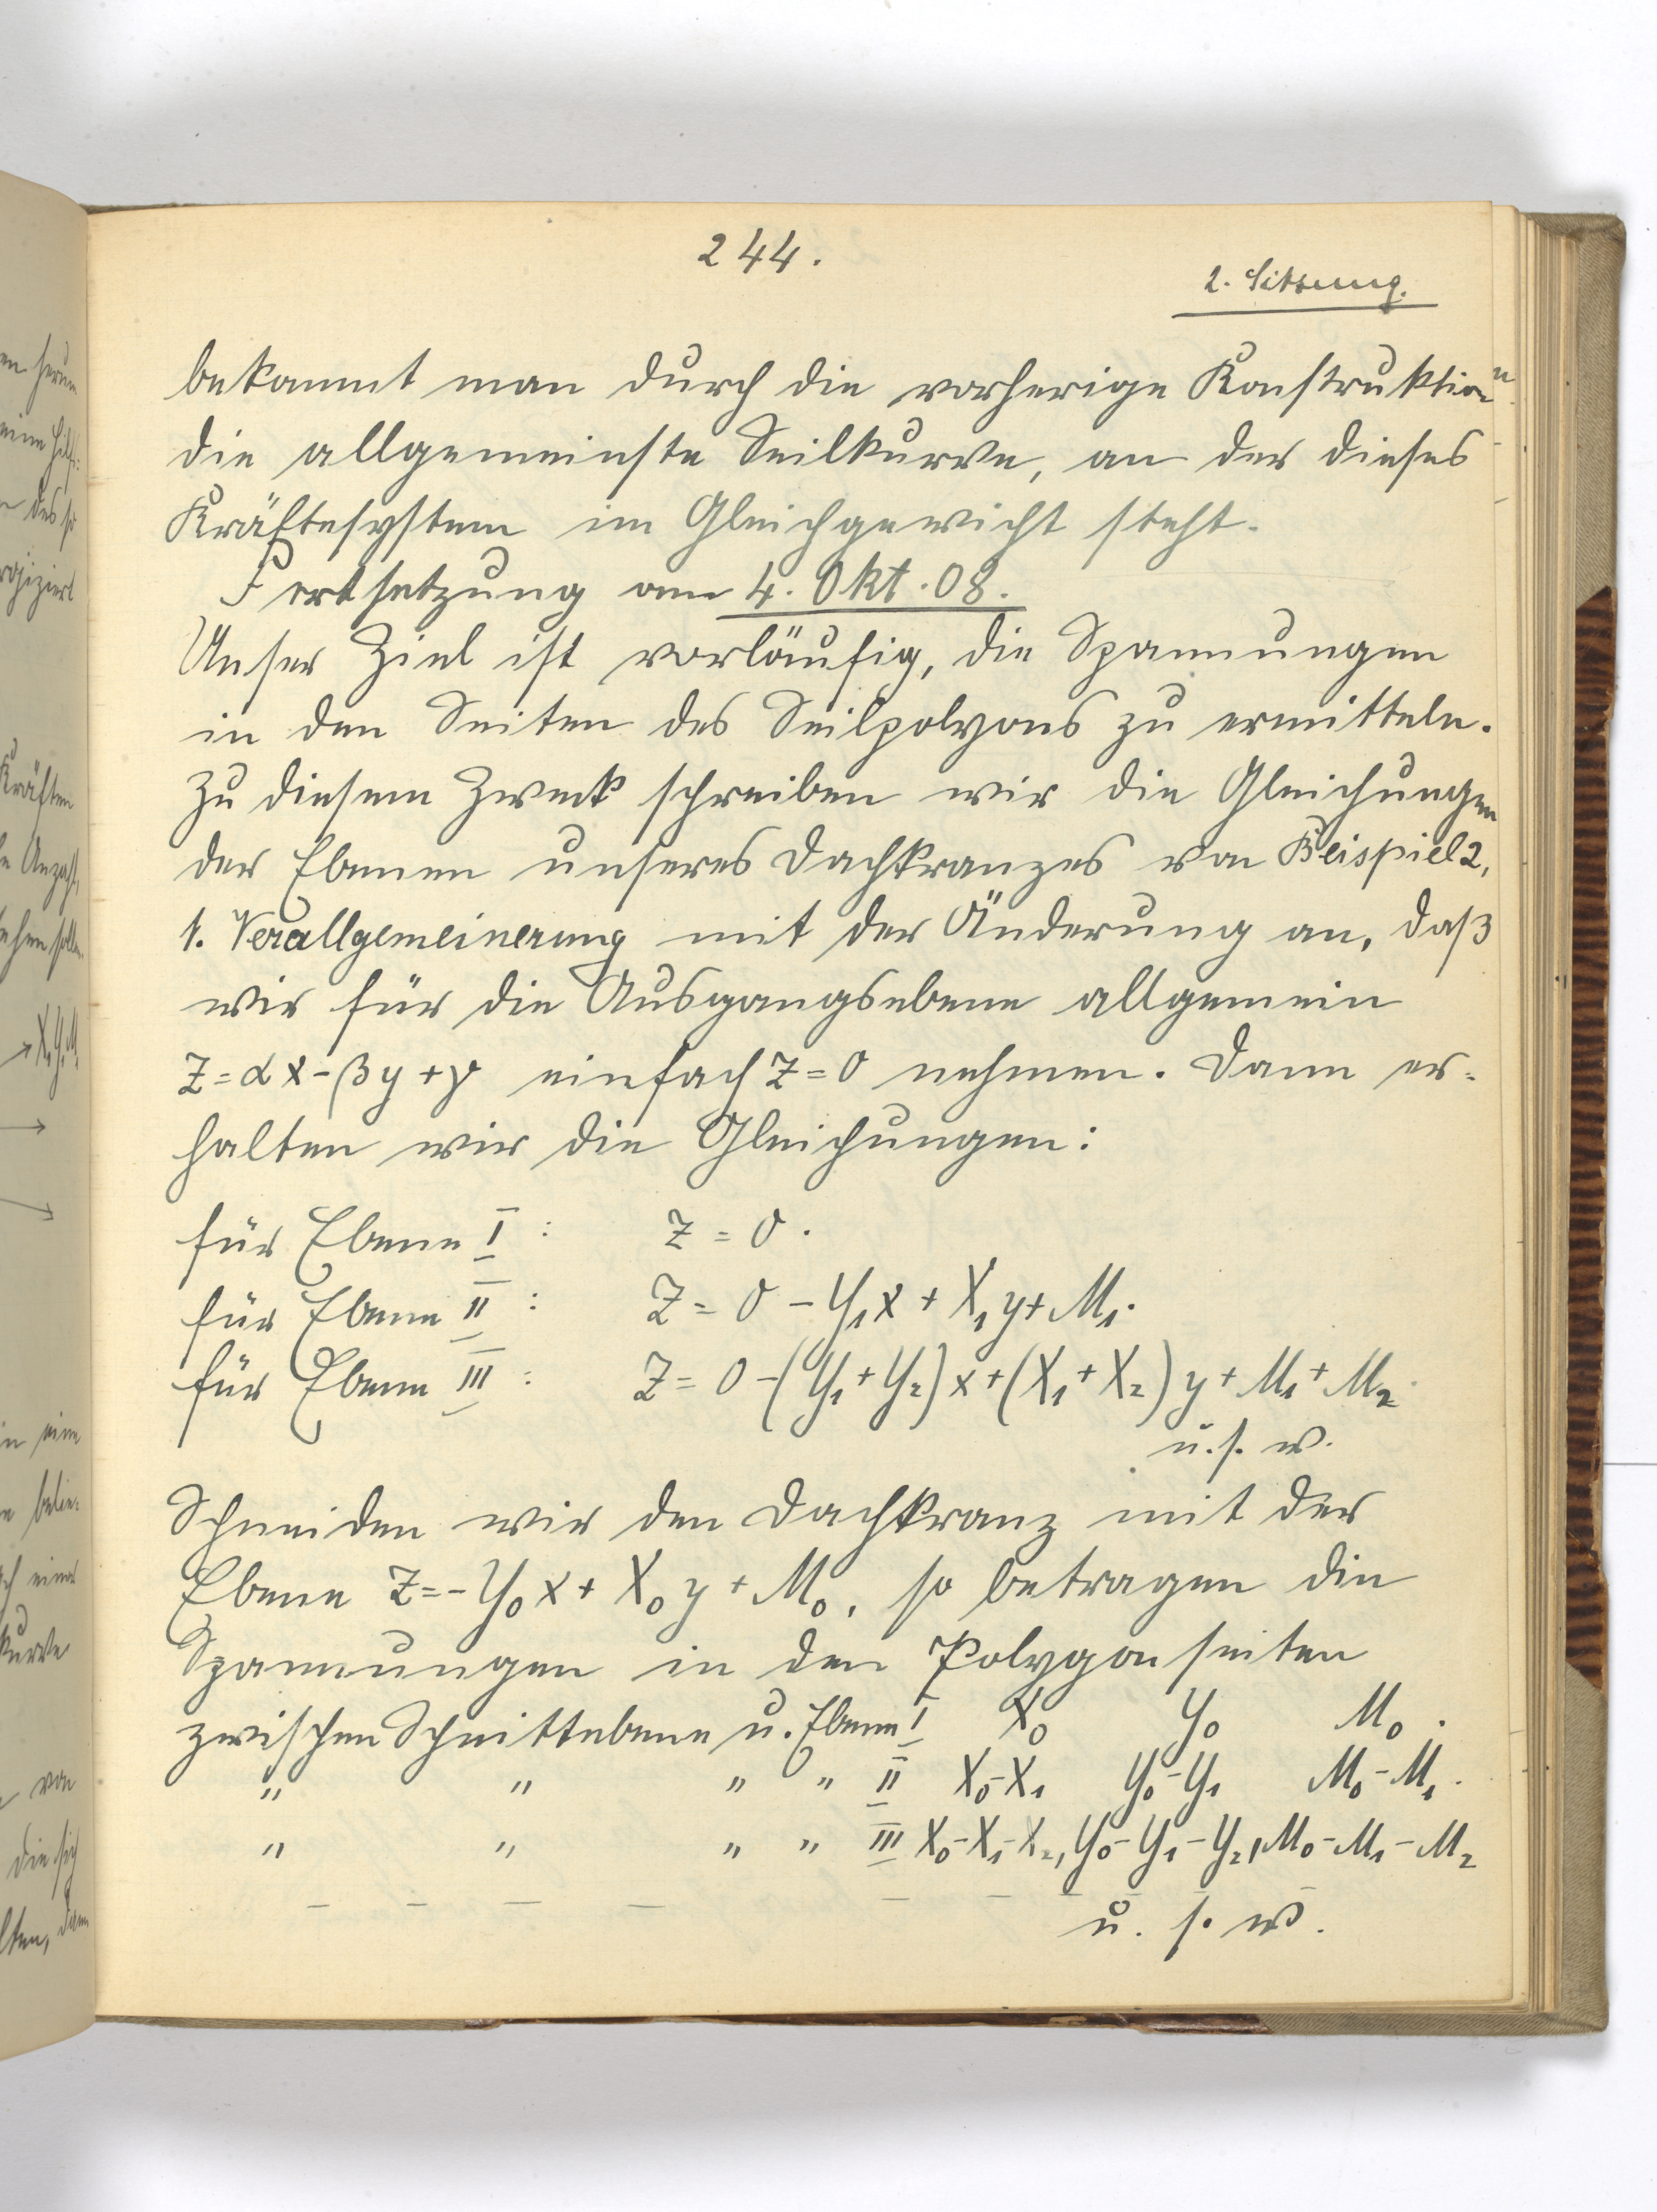 244.
2. Sitzung.
bekommt man durch die vorherige Konstruktion
die allgemeinste Seilkurve, an der dieses
Kräftesystem im Gleichgewicht steht.
Fortsetzung am 4. Okt. 08.
Unser Ziel ist vorläufig, die Spannungen
in den Seiten des Seilpolyons zu ermitteln.
Zu diesem Zweck schreiben wir die Gleichungen
der Ebenen unseres Dachkranzes von Beispiel 2,
1. Verallgemeinerung mit der Änderung an, daß
wir für die Ausgangsebene allgemein
Z = αx - βy + γ einfach Z = 0 nehmen. Dann er-
halten wir die Gleichungen:
für Ebene I : Z = 0.
für Ebene II : Z = 0 - Y₁x + X₁y + M₁.
für Ebene III : Z = 0 - (Y₁ + Y₂)x + (X₁ + X₂)y + M₁ + M₂.
u. s. w.
Schneiden wir den Dachkranz mit der
Ebene Z = - Y₀x + X₀y + M₀, so betragen die
Spannungen in den Polygonseiten
zwischen Schnittebene u. Ebene I X₀ Y₀ M₀.
" " " " II X₀-X₁ Y₀-Y₁ M₀-M₁.
" " " " III X₀-X₁-X₂, Y₀-Y₁-Y₂, M₀-M₁-M₂
u. s. w.